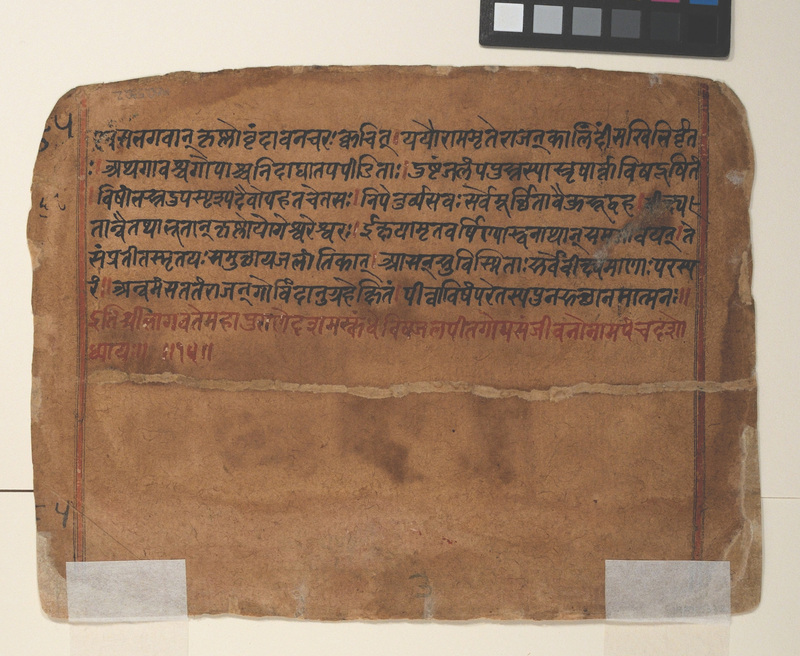 एवं सभगवान् कृष्णो वृंदावनचरः क्वचित् । ययौ राममृते राजन् कालिंदीं सखिभिर्वृत
ः । अथ गावश्च गोपाश्च निदाघातपपीडिताः । दुष्टं जलं पपुस्तस्यास्तृषार्ता विषदूषितं
। विषांभस्तदुपस्पृश्य दैवोपहतचेतसः । निपेतुर्व्यसवः सर्वे मूर्छिता वै कुरूद्वह । वीक्ष्य
तान्वै तथा भूतान् कृष्णो योगेश्वरेश्वरः । ईक्षयामृतवर्षिण्या स्वनाथान् समजीवयन् । ते
संप्रतीतस्मृतयः समुत्थाय जलांतिकात् । आसन् सुविस्मिताः सर्वे वीक्षमाणाः परस्प
रं । अन्वमंसत तं राजन् गोविंदानुग्रहेक्षितं । पीत्वा विषं परेतस्य पुनरुत्थानमात्मनः ॥
इति श्रीभागवते महापुराणे दशमस्कंधे विषजलपीतगोपसंजीवनो नाम पंचदशो
ध्यायः ॥ ॥१५॥